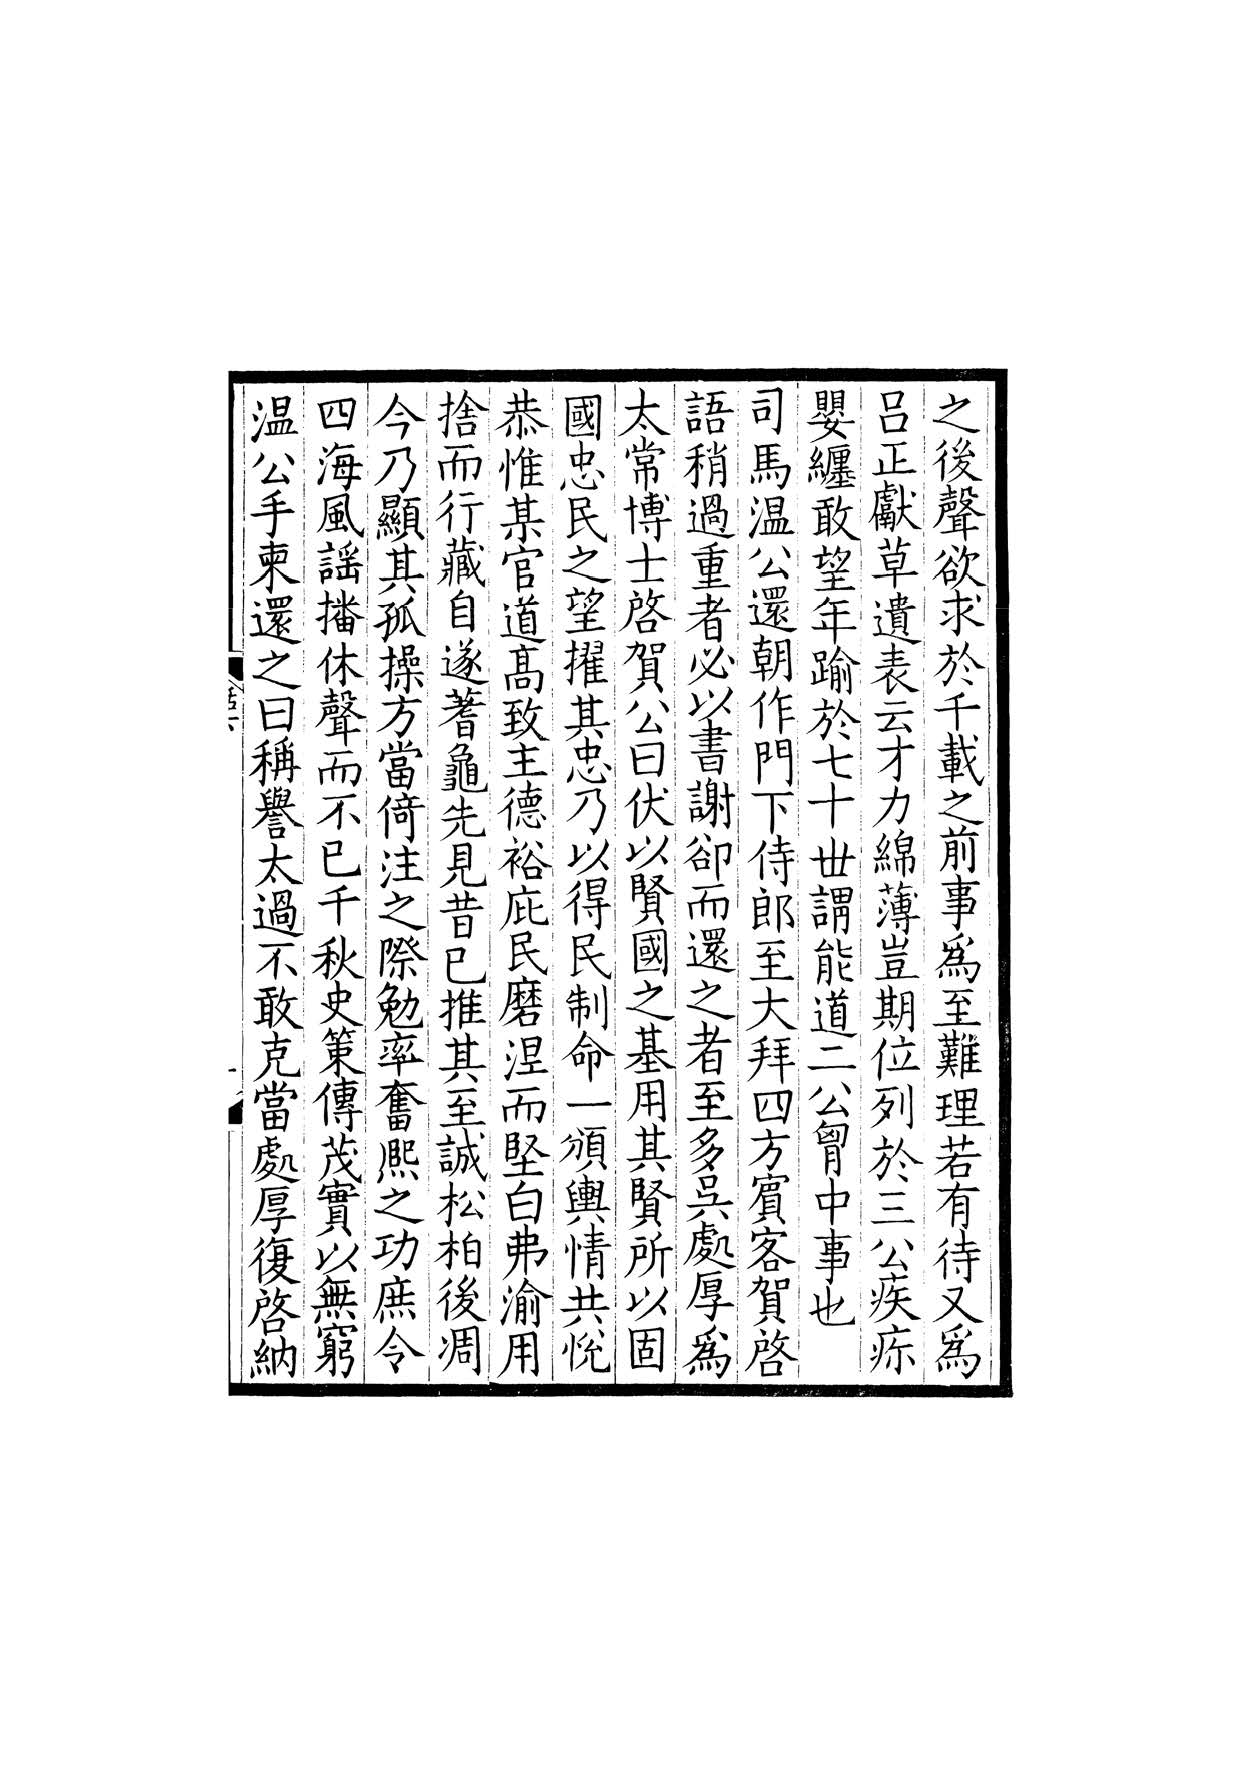 之後聲欲求於千載之前事爲至難理若有待又爲
呂正獻草遺表云才力綿薄豈期位列於三公疾疹
嬰纏敢望年踰於七十丗謂能道二公胷中事也
司馬溫公還朝作門下侍郎至大拜四方賓客賀啓
語稍過重者必以書謝卻而還之者至多吳處厚爲
太常博士啓賀公曰伏以賢國之基用其賢所以固
國忠民之望擢其忠乃以得民制命一頒輿情共悅
恭惟某官道高致主德裕庇民磨涅而堅白弗渝用
捨而行藏自遂蓍龜先見昔已推其至誠松柏後凋
今乃顯其孤操方當倚注之際勉率奮熙之功庶令
四海風謡播休聲而不已千秋史策傳茂實以無窮
温公手柬還之曰稱譽太過不敢克當處厚復啓納